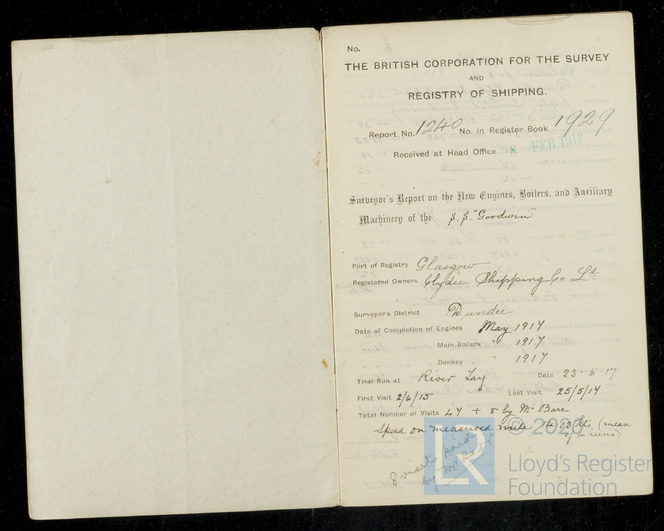 No.
THE BRITISH CORPORATION FOR THE SURVEY
AND
REGISTRY OF SHIPPING.
Report No. 1240 No. in Register Book 1929
Received at Head Office FEB 1918
Surveyor's Report on the New Engines, Boilers, and Auxiliary
Machinery of the s.s. "Goodwin"
Port of Registry Glasgow
Registered Owners Clyde Shipping Co Ld.
Surveyor's District Dundee
Date of Completion of Engines May 1917
Main Boilers " 1917
Donkey " 1917
Trial Run at River Tay Date 23-5-17
First Visit 2/6/15 Last Visit 25/5/17
Total Number of Visits 47 + 8 by Mr Barr
Speed on measured mile (mean
of 4 runs)
8 visits paid
by Mr
LR © 2020
Lloyd's Register
Foundation